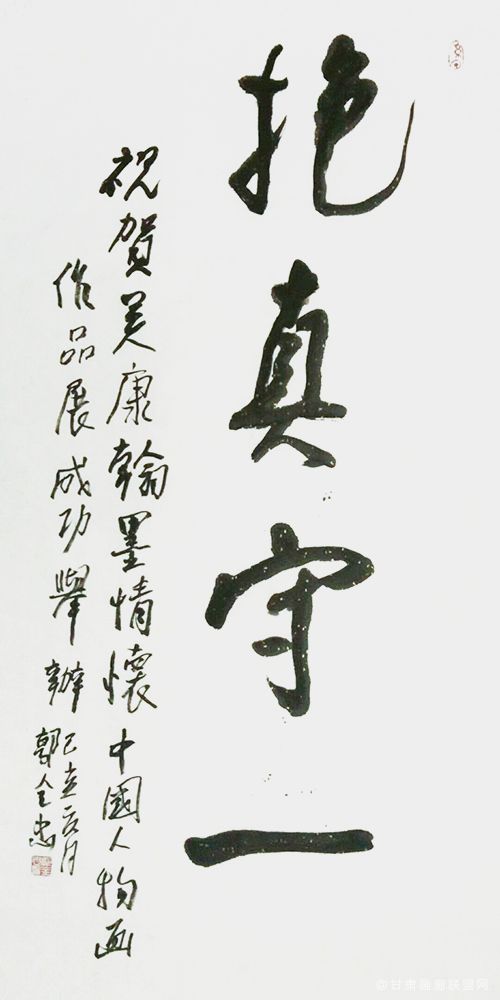 抱真守一
祝賀美康翰墨情懷中國人物画
作品展成功舉辦
己亥 月
郭全忠
@甘肃画廊联盟网